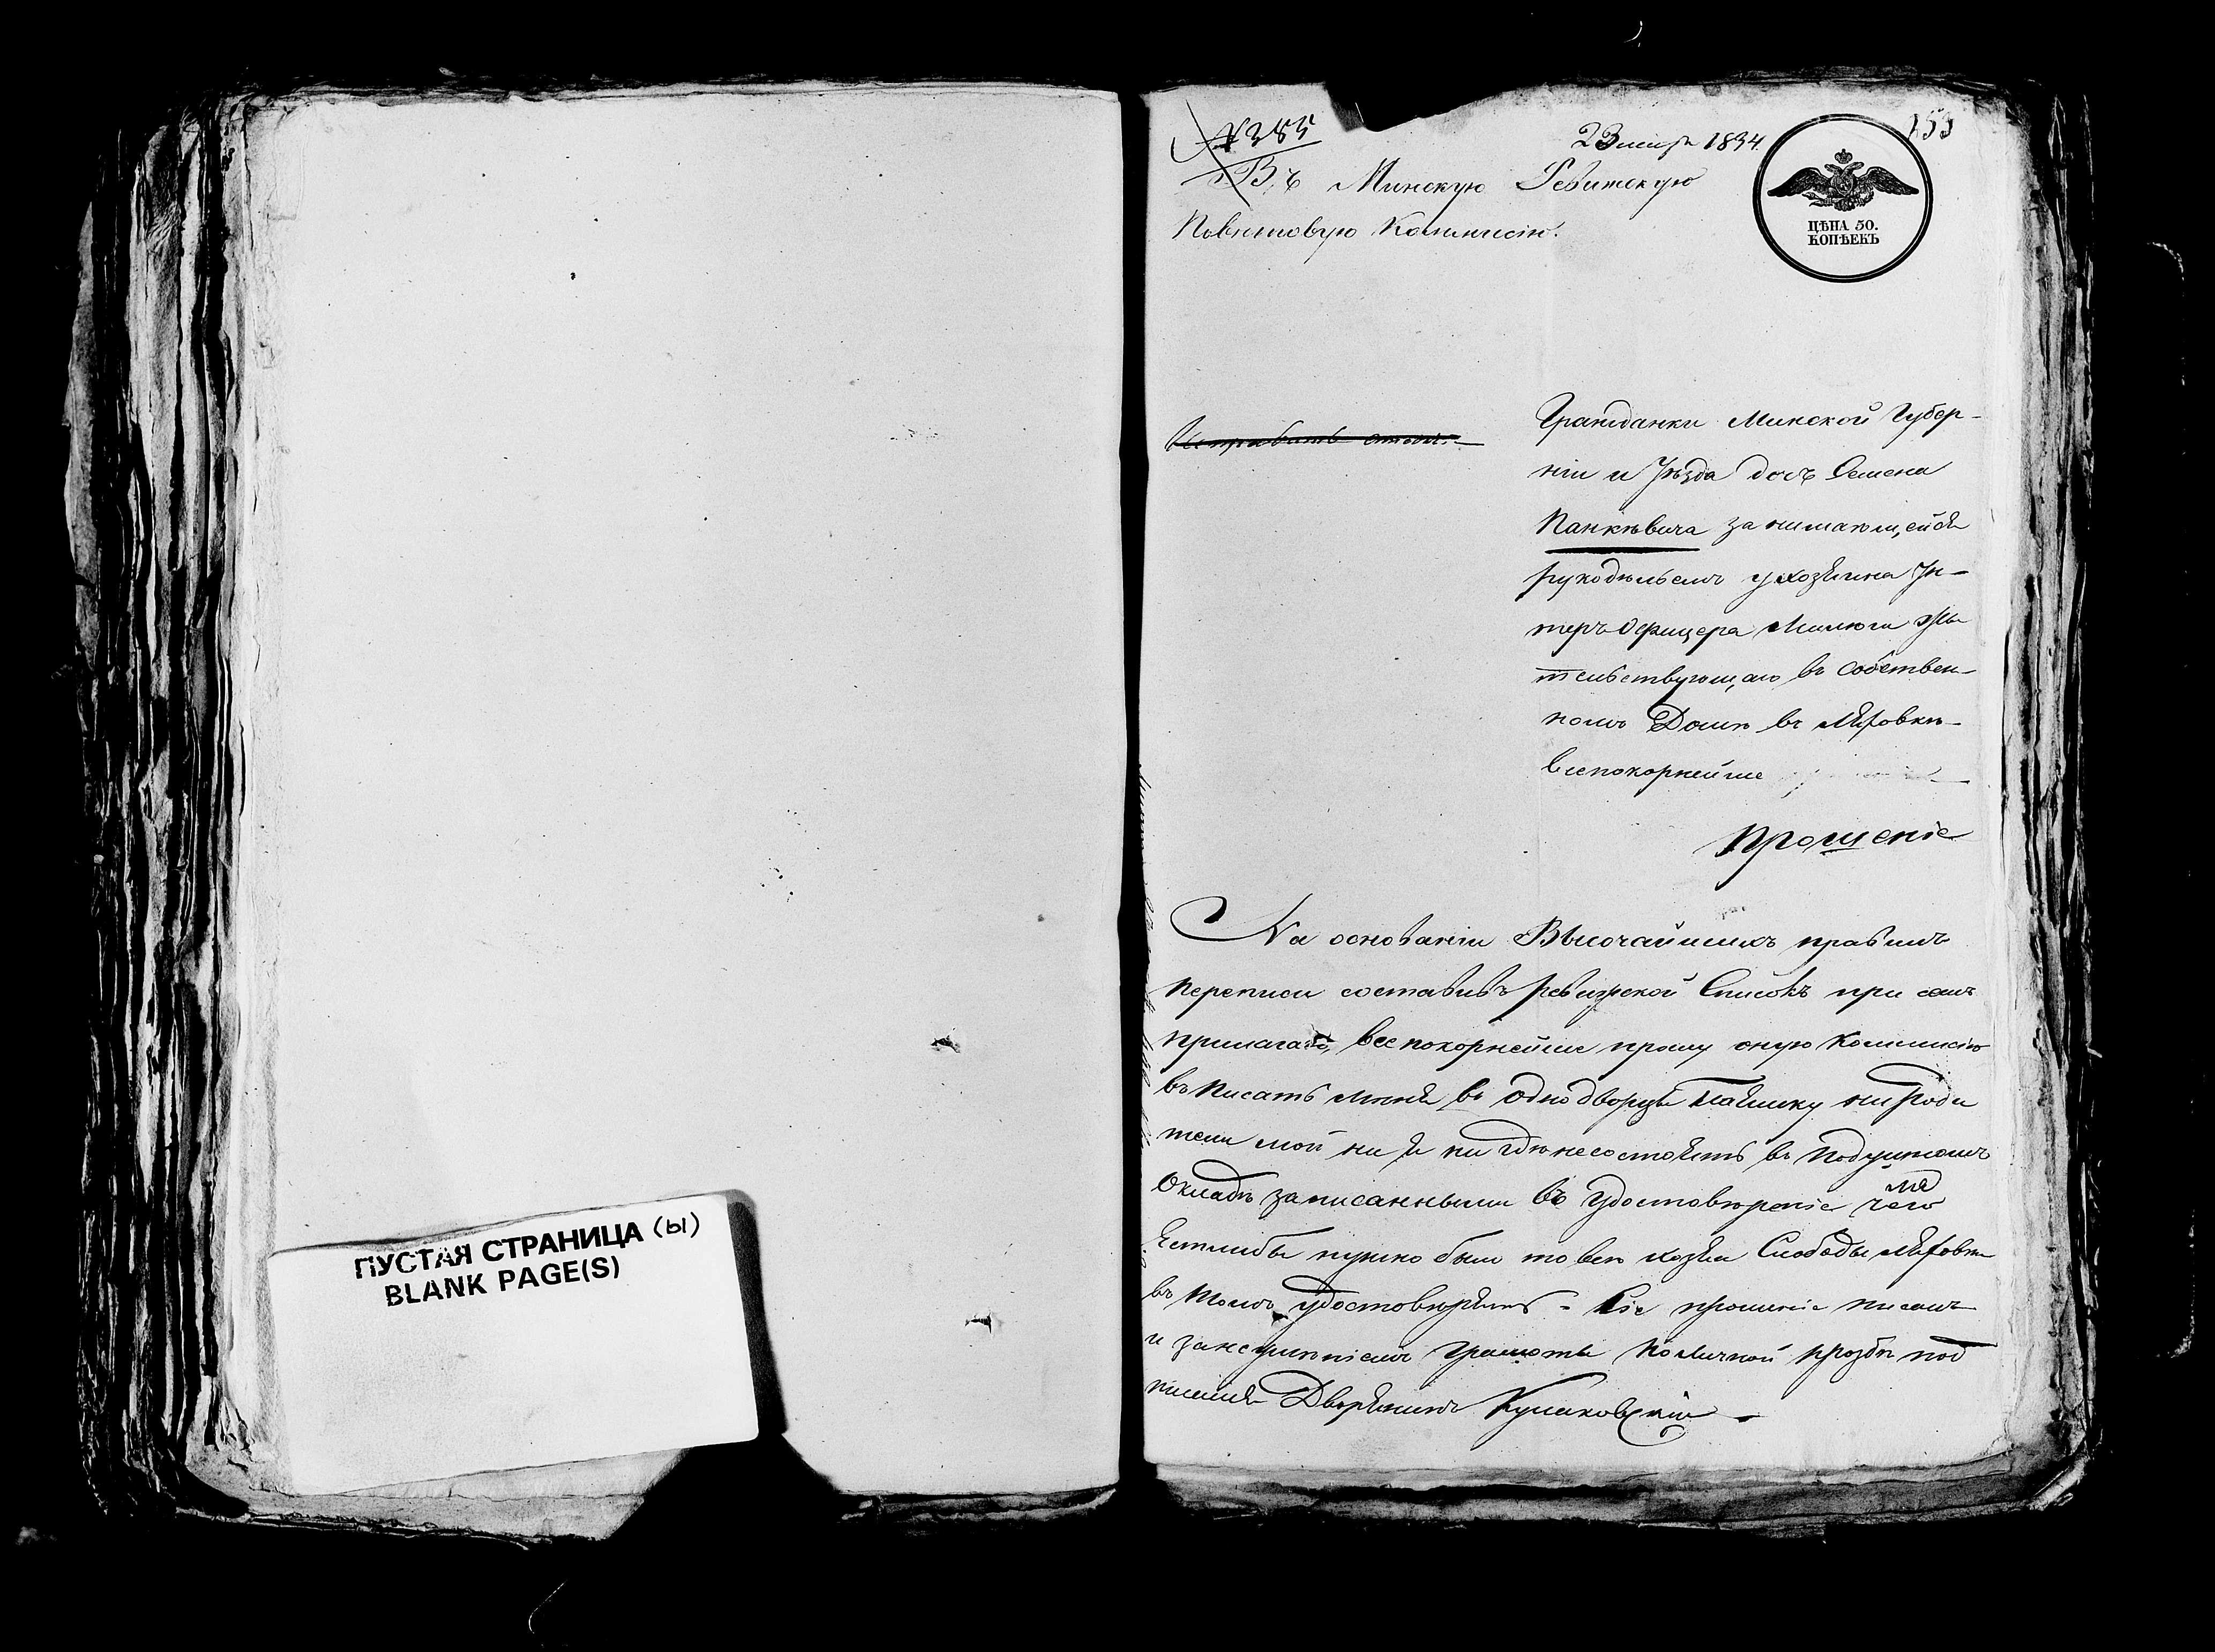 ПУСТАЯ СТРАНИЦА (ы)
BLANK PAGE(S)
№ 385
23 1834
153
ЦѢНА 50.
КОПѢЕКЪ
Въ Минскую Ревитскую
Повѣтовую Коммисію.
Гражданки Минской Губер-
ніи и Уѣзда Семена
Панкѣвича занимающейся
рукодѣльемъ у хозяина Ун-
теръ Офицера жи
тельствующаго въ собствен-
номъ Домѣ въ Ляховкѣ
всепокорнейше
Прошеніе
На основаніи Высочайшихъ правилъ
переписи составивъ ревижской Списокъ при семъ
прилагаю, всепокорнейше прошу оную Коммисію
въ Писать въ однодворцы ни роди
тели мои ни я ни гдѣ несостоятъ въ Подушномъ
Окладѣ записанными въ Удостовѣреніе чего
Естлибы нужно было то всѣ хозяи Слободы Ляховки
въ томъ удостоверятъ - Сіе прошеніе писалъ
и за неумѣніемъ грамоты По личной прозбѣ под
писался Дворянинъ